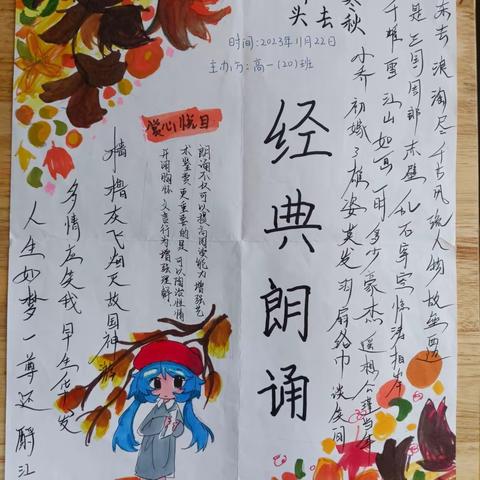 东去浪淘尽千古风流人物故垒西
是三国周郎赤壁乱石穿空惊涛拍岸
千堆雪江山如画一时多少豪杰遥想公瑾当年
小乔初嫁了雄姿英发羽扇纶巾谈笑间
寒秋
去
头
时间:2023年11月22日
主办方:高一(20)班
经典朗诵
赏心悦目
朗诵不仅可以提高阅读能力增强艺
术鉴赏更重要的是可以陶冶性情
开阔胸怀文言行为增强理解
樯橹灰飞烟灭故国神游
多情应笑我早生华发
人生如梦一尊还酹江